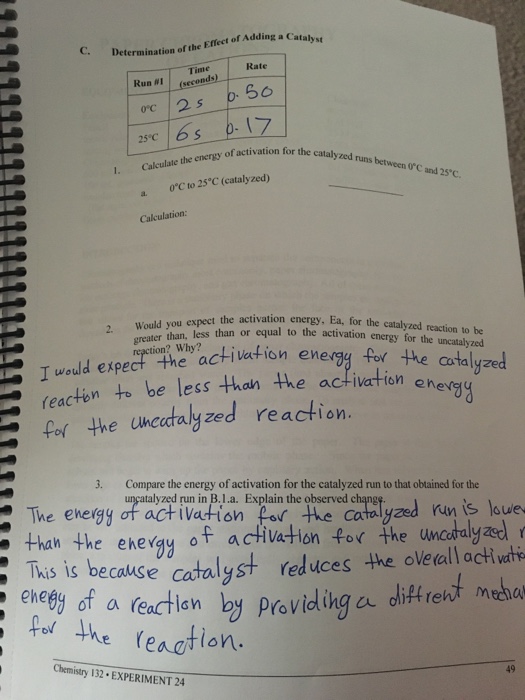 C. Determination of the Effect of Adding a Catalyst
Run #1 Time (seconds) Rate
0°C 2s 0.50
25°C 6s 0.17
1. Calculate the energy of activation for the catalyzed runs between 0°C and 25°C.
a. 0°C to 25°C (catalyzed)
Calculation:
2. Would you expect the activation energy, Ea, for the catalyzed reaction to be
greater than, less than or equal to the activation energy for the uncatalyzed
reaction? Why?
I would expect the activation energy for the catalyzed
reaction to be less than the activation energy
for the uncatalyzed reaction.
3. Compare the energy of activation for the catalyzed run to that obtained for the
uncatalyzed run in B.1.a. Explain the observed change.
The energy of activation for the catalyzed run is lower
than the energy of activation for the uncatalyzed r
This is because catalyst reduces the overall activatio
energy of a reaction by providing a diffrent mecha
for the reaction.
Chemistry 132 • EXPERIMENT 24
49